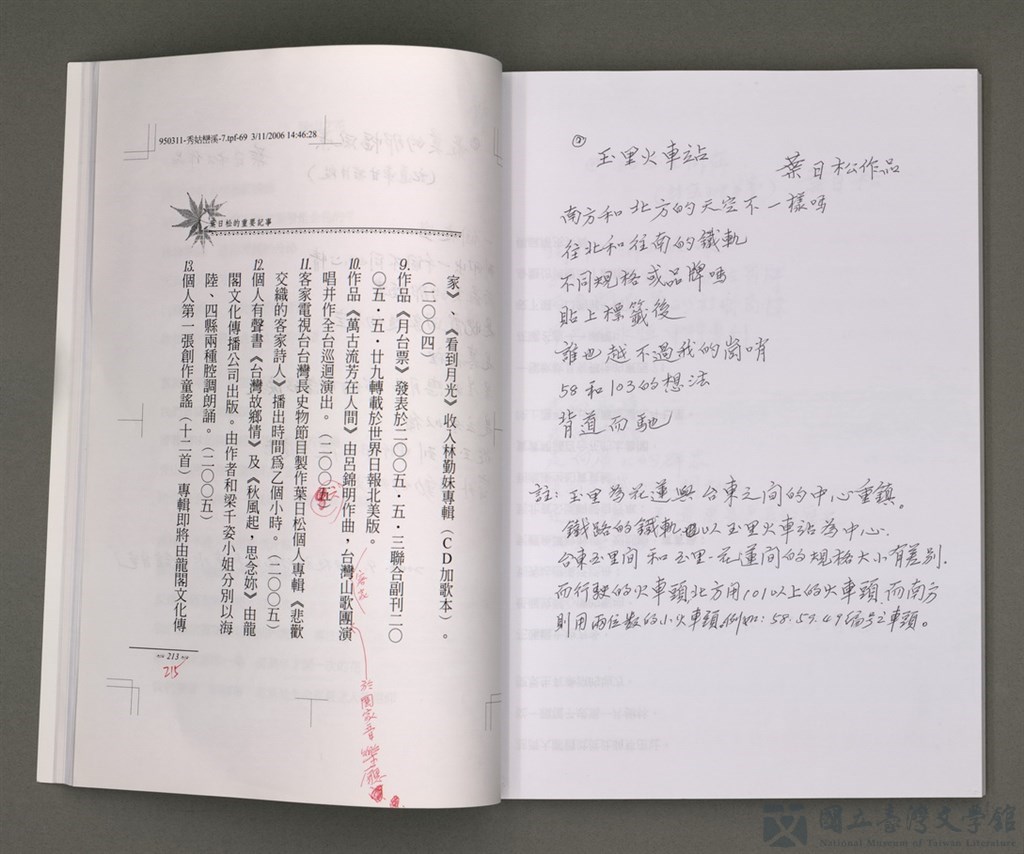 950311-秀姑巒溪-7.tpf-69 3/11/2006 14:46:28
葉日松的重要記事
家》、《看到月光》收入林勤妹專輯（CD加歌本）。
（二〇〇四）
9.作品《月台票》發表於二〇〇五．五．三聯合副刊二〇
〇五．五．廿九轉載於世界日報北美版。
10.作品《萬古流芳在人間》由呂錦明作曲，台灣山歌團演
唱并作全台巡迴演出。（二〇〇五）
六
客家
於國家音樂廳
11.客家電視台台灣長史物節目製作葉日松個人專輯《悲歡
交織的客家詩人》播出時間爲乙個小時。（二〇〇五）
12.個人有聲書《台灣故鄉情》及《秋風起，思念妳》由龍
閣文化傳播公司出版。由作者和梁千姿小姐分別以海
陸、四縣兩種腔調朗誦。（二〇〇五）
13.個人第一張創作童謠（十二首）專輯即將由龍閣文化傳
213
215
玉里火車站
葉日松作品
南方和北方的天空不一樣嗎
往北和往南的鐵軌
不同規格或品牌嗎
貼上標籤後
誰也越不過我的崗哨
58和103的想法
背道而馳
註：玉里為花蓮與台東之間的中心重鎮。
鐵路的鐵軌以玉里火車站為中心.
台東玉里間和玉里-花蓮間的規格大小有差別.
而行駛的火車頭,北方用101以上的火車頭,而南方
則用兩位數的小火車頭,例如：58.57.49編号之車頭。
國立臺灣文學館
National Museum of Taiwan Literature